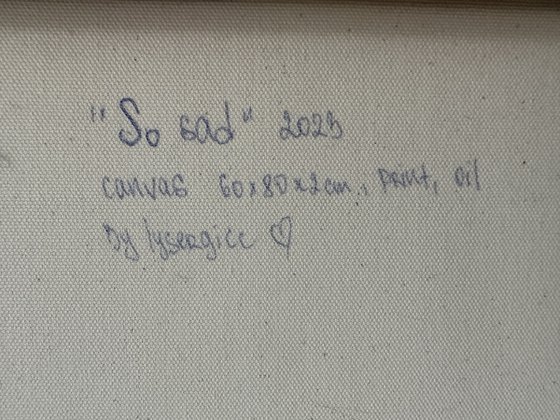 "So sad" 2023
canvas 60x80x2cm., print, oil
by lysergicc ♡